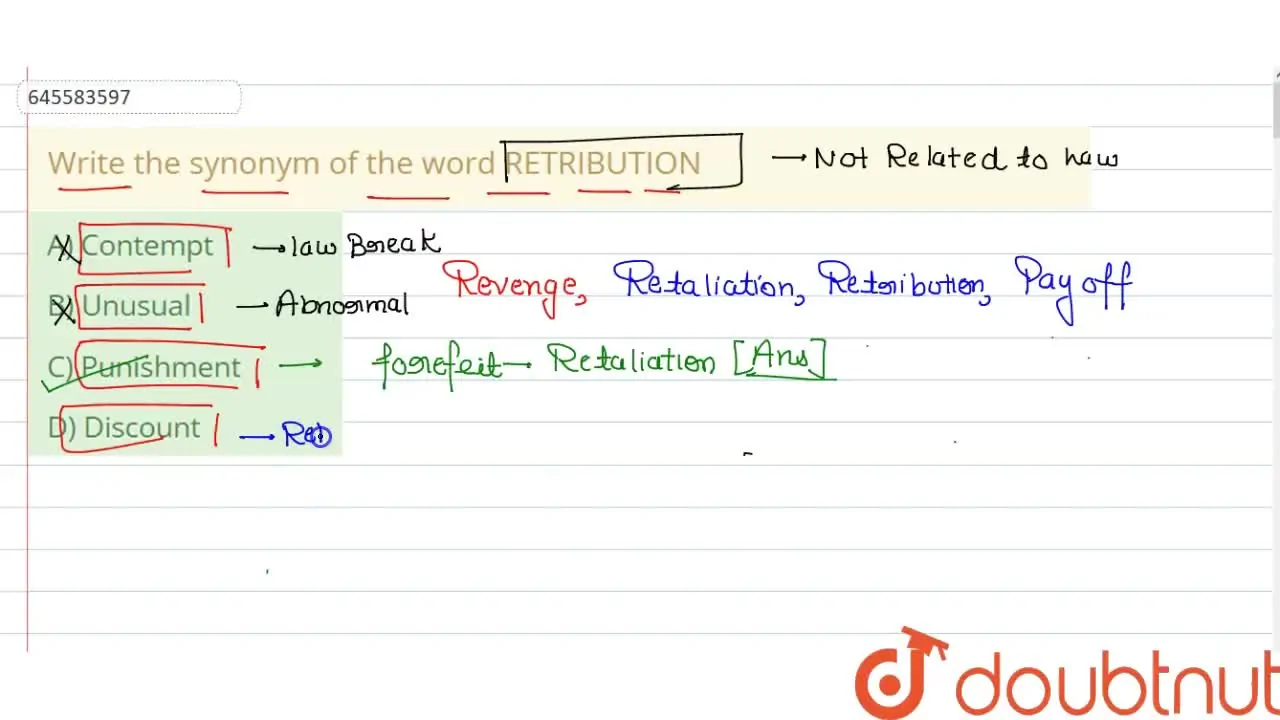 645583597
Write the synonym of the word RETRIBUTION → Not Related to Law
A) Contempt → law Break
Revenge, Retaliation, Retribution, Pay off
B) Unusual → Abnormal
C) Punishment → forefeit → Retaliation [Ans]
D) Discount → Reb
doubtnut